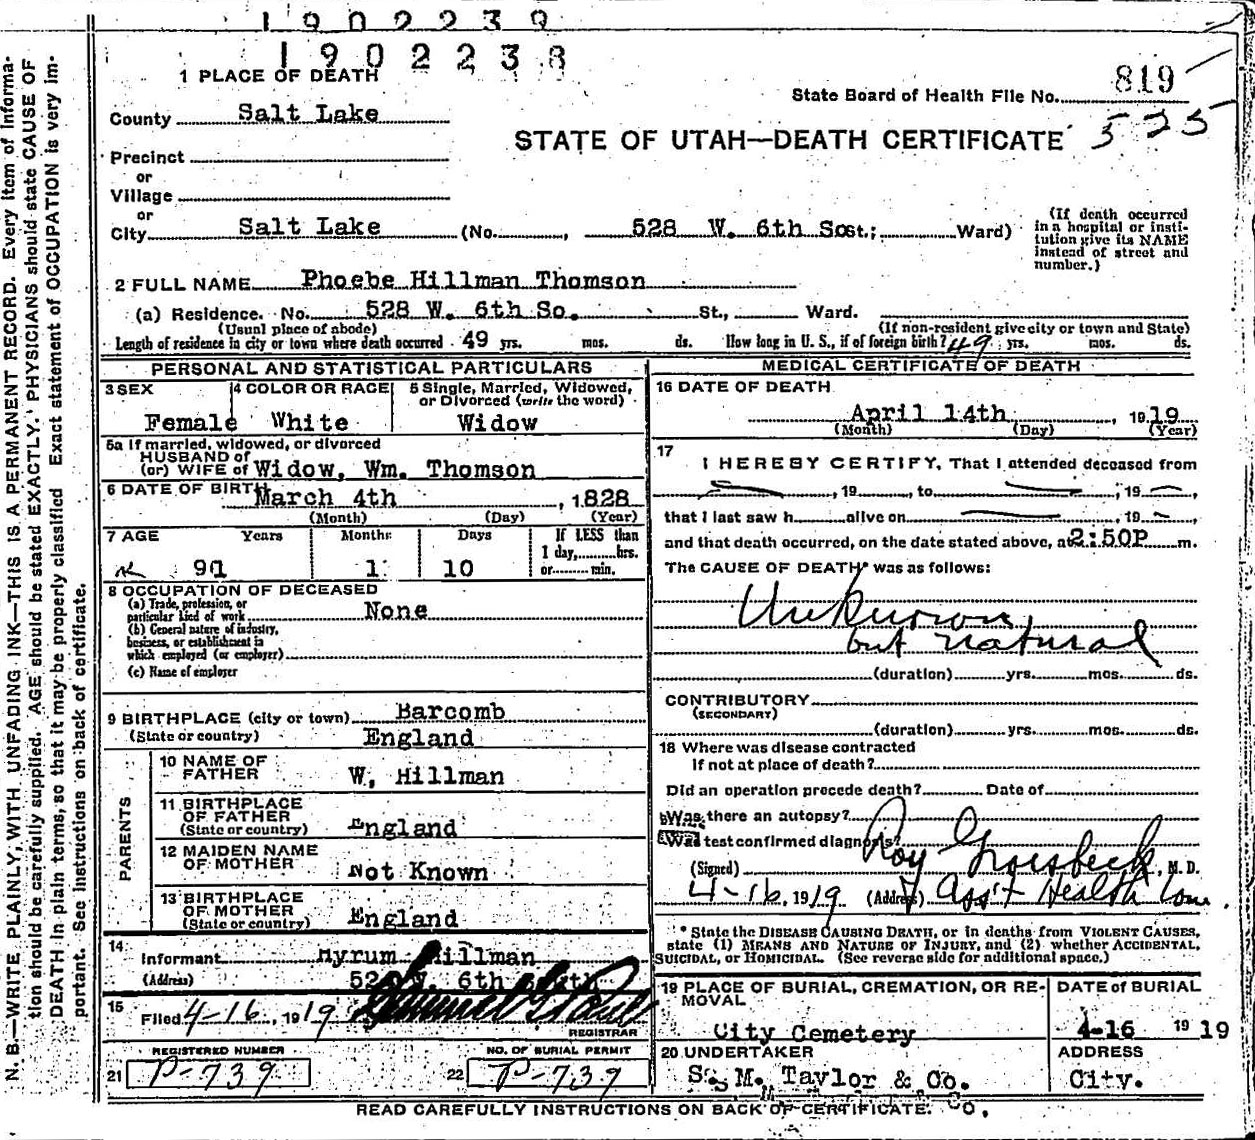 1902239
1902238
1 PLACE OF DEATH
819
State Board of Health File No.
County Salt Lake
STATE OF UTAH—DEATH CERTIFICATE 525
Precinct
or
Village
or
City Salt Lake (No. , 528 W. 6th So St.; Ward)
(If death occurred in a hospital or insti-
tution give its NAME
instead of street and
number.)
2 FULL NAME Phoebe Hillman Thomson
(a) Residence. No. 528 W. 6th So. St., Ward.
(Usual place of abode) (If non-resident give city or town and State)
Length of residence in city or town where death occurred 49 yrs. mos. ds. How long in U. S., if of foreign birth? 49 yrs. mos. ds.
PERSONAL AND STATISTICAL PARTICULARS
3 SEX 4 COLOR OR RACE 5 Single, Married, Widowed,
or Divorced (write the word)
Female White Widow
5a If married, widowed, or divorced
HUSBAND of
(or) WIFE of Widow, Wm. Thomson
6 DATE OF BIRTH March 4th , 1828
(Month) (Day) (Year)
7 AGE Years Months Days If LESS than
1 day, hrs.
or min.
91 1 10
8 OCCUPATION OF DECEASED
(a) Trade, profession, or
particular kind of work None
(b) General nature of industry,
business, or establishment in
which employed (or employer)
(c) Name of employer
9 BIRTHPLACE (city or town) Barcomb
(State or country) England
PARENTS
10 NAME OF
FATHER W. Hillman
11 BIRTHPLACE
OF FATHER
(State or country) England
12 MAIDEN NAME
OF MOTHER Not Known
13 BIRTHPLACE
OF MOTHER
(State or country) England
14
Informant Hyrum Hillman
(Address) 520 W. 6th South
15
Filed 4-16, 1919
REGISTRAR
REGISTERED NUMBER NO. OF BURIAL PERMIT
21 P-739 22 P-739
MEDICAL CERTIFICATE OF DEATH
16 DATE OF DEATH
April 14th , 1919
(Month) (Day) (Year)
17
I HEREBY CERTIFY, That I attended deceased from
, 19 , to , 19 ,
that I last saw h alive on , 19 ,
and that death occurred, on the date stated above, at 2:50P m.
The CAUSE OF DEATH* was as follows:
Unknown
but natural
(duration) yrs. mos. ds.
CONTRIBUTORY
(SECONDARY)
(duration) yrs. mos. ds.
18 Where was disease contracted
If not at place of death?
Did an operation precede death? Date of
Was there an autopsy?
Was test confirmed diagnosis?
(Signed) Roy Groesbeck, M. D.
4-16, 1919 (Address) Ass't Health Com.
* State the DISEASE CAUSING DEATH, or in deaths from VIOLENT CAUSES,
state (1) MEANS AND NATURE OF INJURY, and (2) whether ACCIDENTAL,
SUICIDAL, or HOMICIDAL. (See reverse side for additional space.)
19 PLACE OF BURIAL, CREMATION, OR RE-
MOVAL
City Cemetery
DATE of BURIAL
4-16 1919
20 UNDERTAKER
S. M. Taylor & Co.
ADDRESS
City.
READ CAREFULLY INSTRUCTIONS ON BACK OF CERTIFICATE.
N. B.—WRITE PLAINLY, WITH UNFADING INK—THIS IS A PERMANENT RECORD. Every item of informa-
tion should be carefully supplied. AGE should be stated EXACTLY. PHYSICIANS should state CAUSE OF
DEATH in plain terms, so that it may be properly classified Exact statement of OCCUPATION is very im-
portant. See instructions on back of certificate.